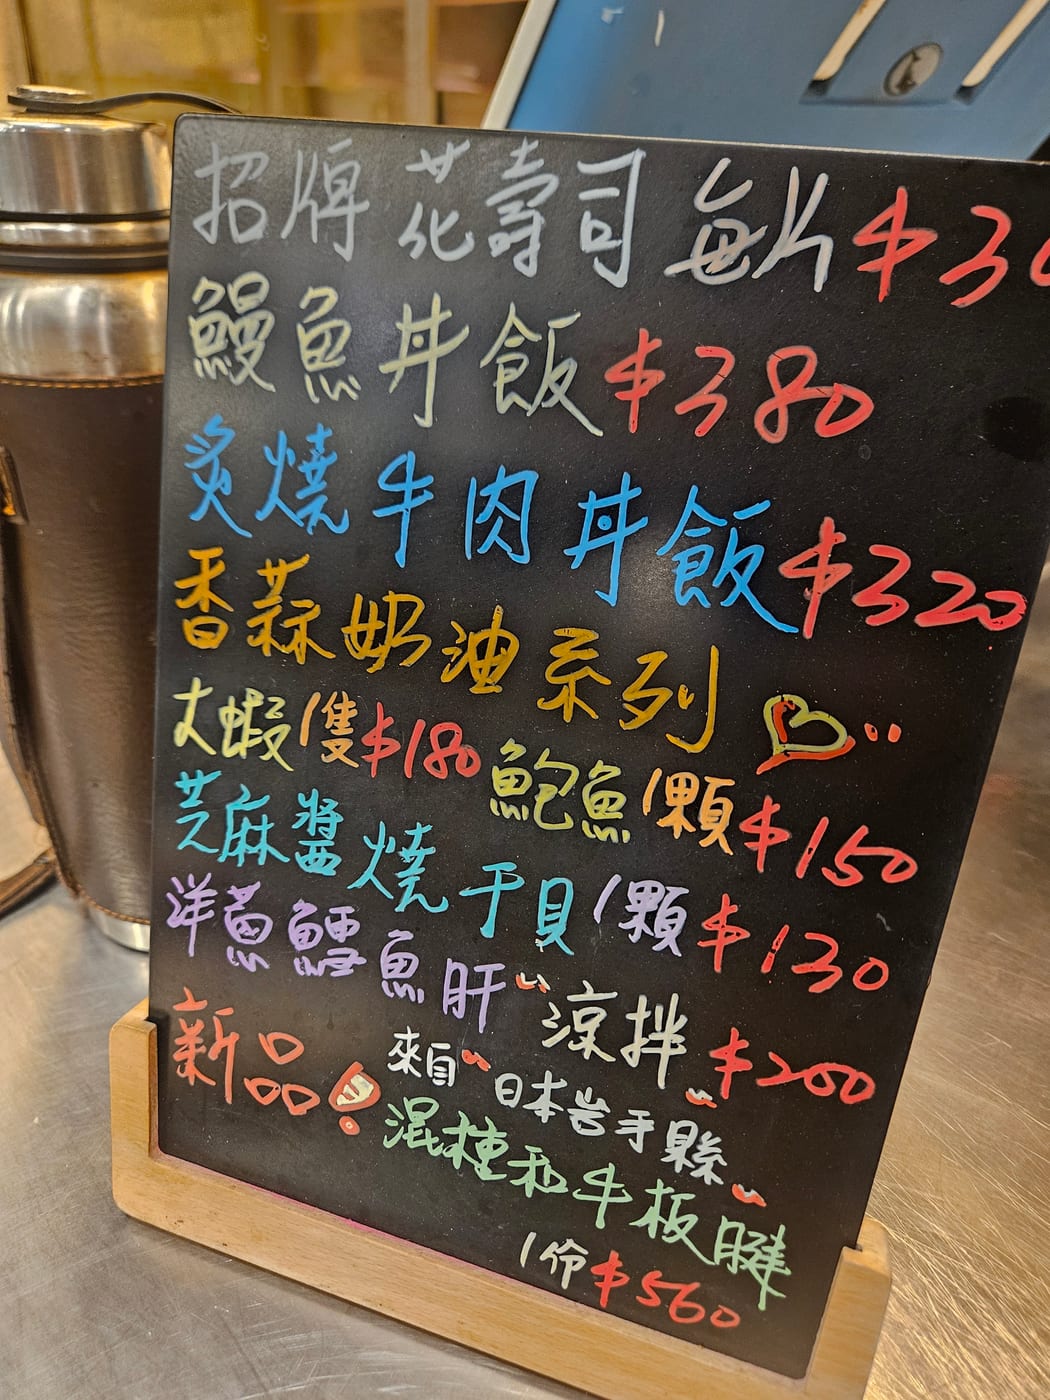 招牌 花壽司 每片 $30
鰻魚丼飯 $380
炙燒牛肉丼飯 $320
香蒜奶油系列
大蝦1隻$180 鮑魚1顆$150
芝麻醬燒干貝1顆$130
洋蔥鱈魚肝 涼拌 $200
新品!
來自 日本岩手縣
混種和牛板腱
1份$560